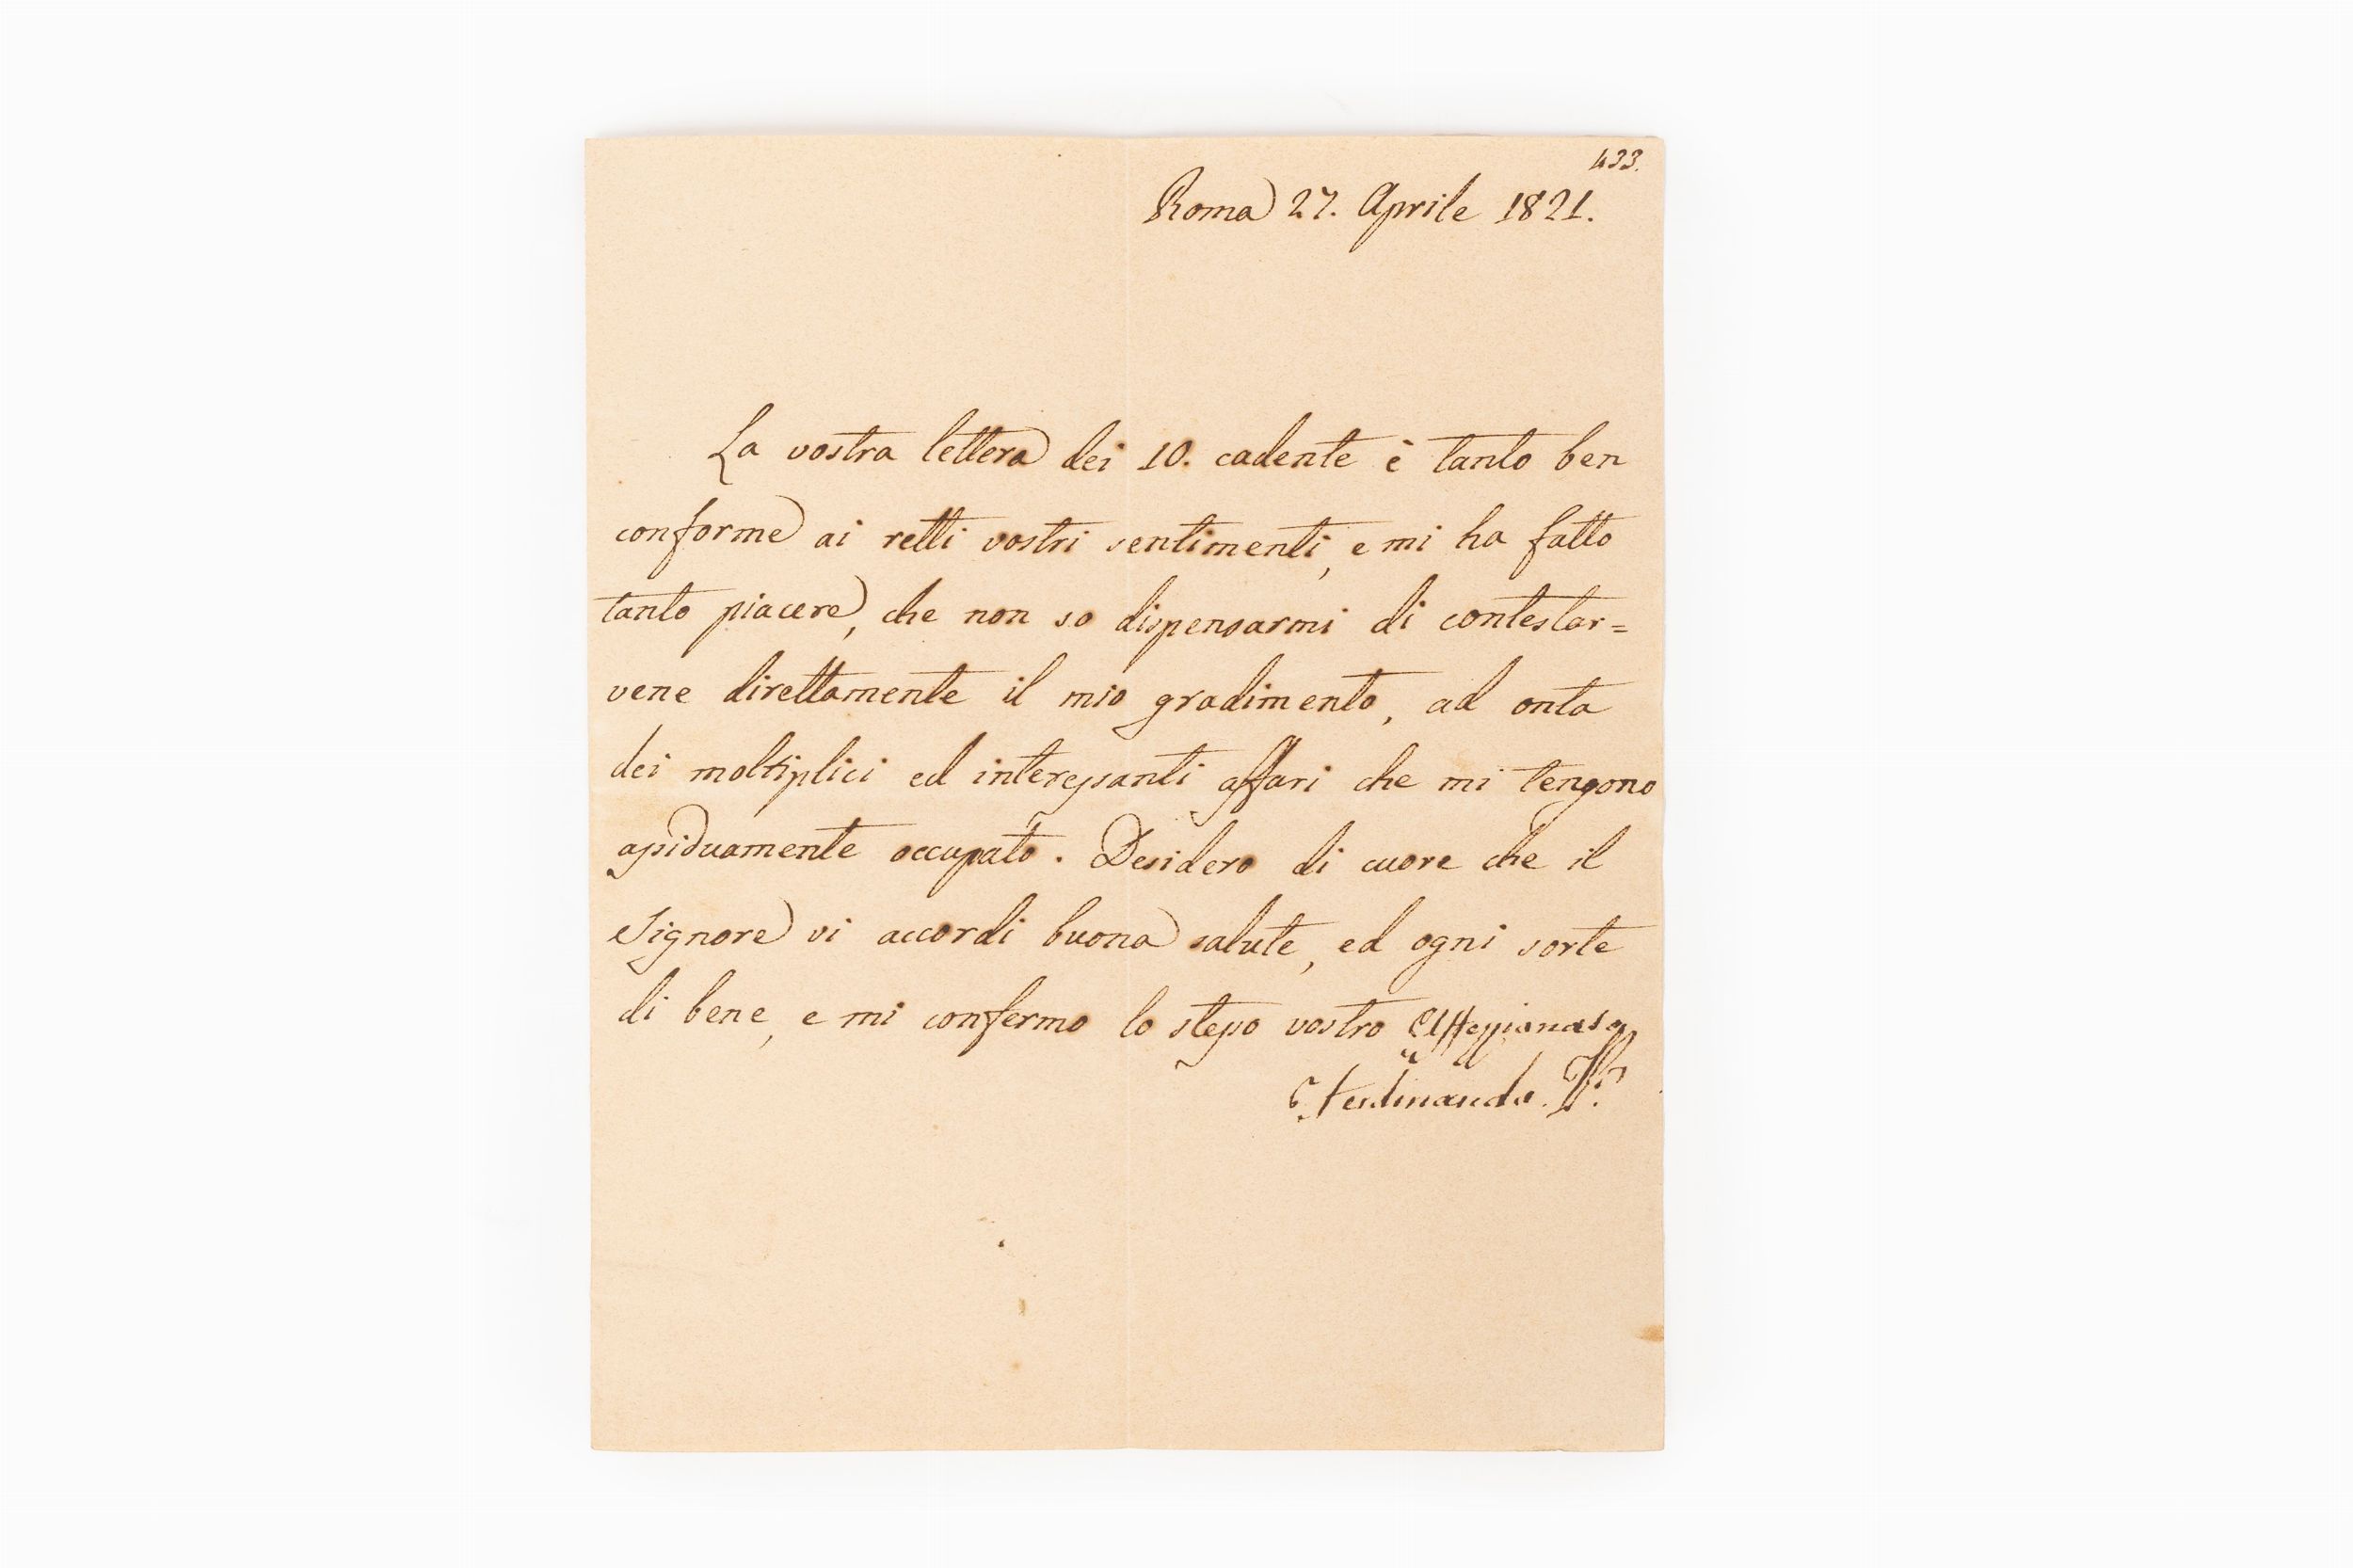 433.
Roma 27. Aprile 1821.
La vostra lettera dei 10. cadente è tanto ben
conforme ai retti vostri sentimenti, e mi ha fatto
tanto piacere, che non so dispensarmi di contestar=
vene direttamente il mio gradimento, ad onta
dei moltiplici ed interessanti affari che mi tengono
assiduamente occupato. Desidero di cuore che il
Signore vi accordi buona salute, ed ogni sorte
di bene, e mi confermo lo stesso vostro
Ferdinando.